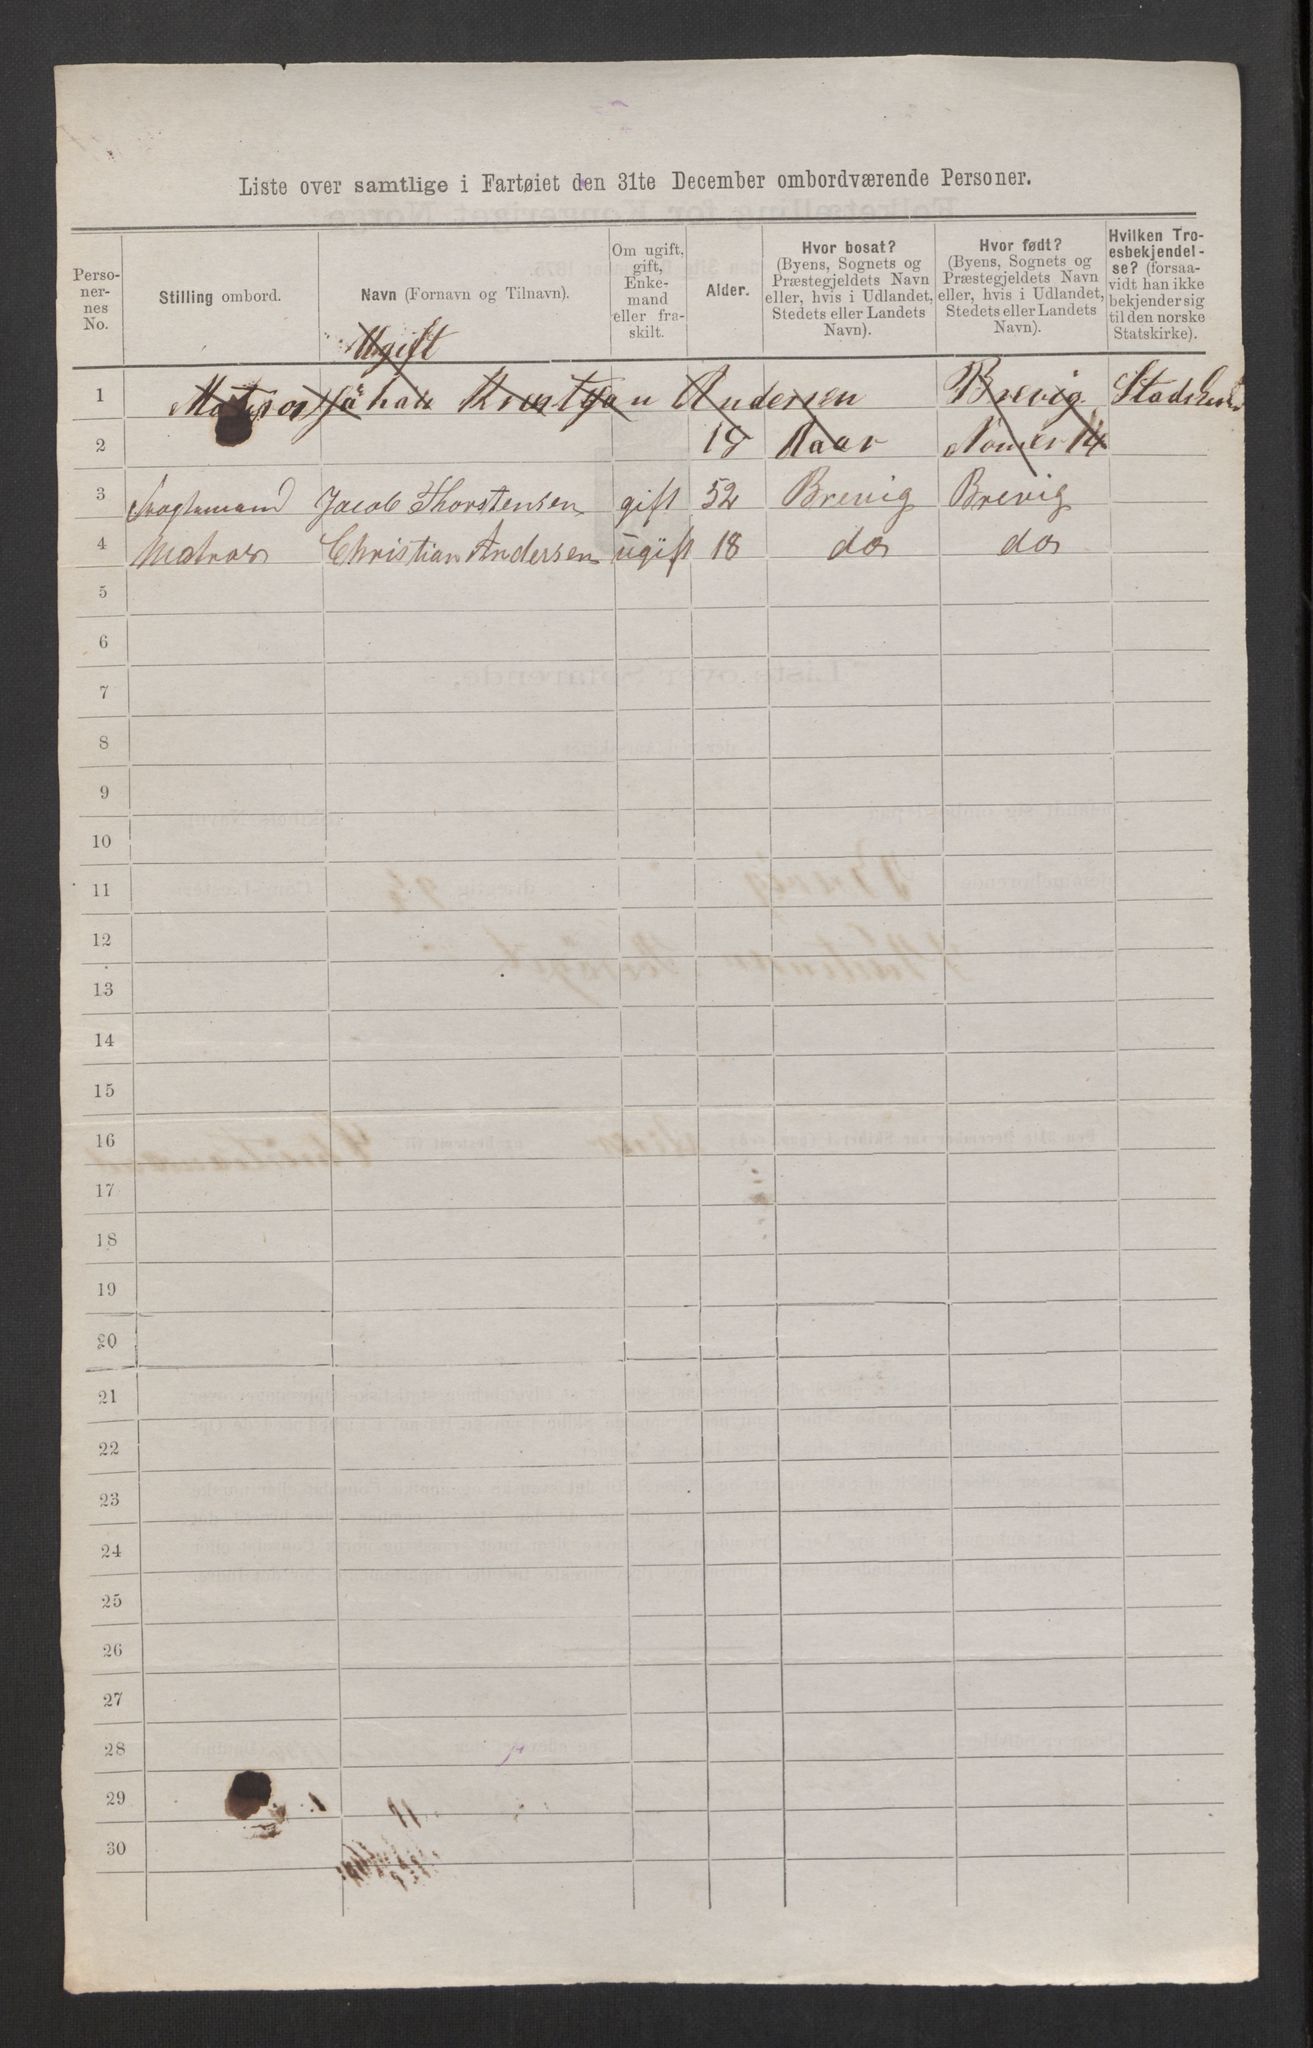 Liste over samtlige i Fartøiet den 31te December ombordværende Personer.
Perso-
ner-
nes
No.
Stilling ombord.
Navn (Fornavn og Tilnavn).
Om ugift,
gift,
Enke-
mand
eller fra-
skilt.
Alder.
Hvor bosat?
(Byens, Sognets og
Præstegjeldets Navn
eller, hvis i Udlandet,
Stedets eller Landets
Navn).
Hvor født?
(Byens, Sognets og
Præstegjeldets Navn
eller, hvis i Udlandet,
Stedets eller Landets
Navn).
Hvilken Tro-
esbekjendel-
se? (forsaa-
vidt han ikke
bekjender sig
til den norske
Statskirke).
Ugift
1 Matros Johan Kristian Andersen Brevig
2 19 Aaar 14
3 Jacob Thorstensen gift 52 Brevig Brevig
4 Matros Christian Andersen ugift 18 do do
5
6
7
8
9
10
11
12
13
14
15
16
17
18
19
20
21
22
23
24
25
26
27
28
29
30